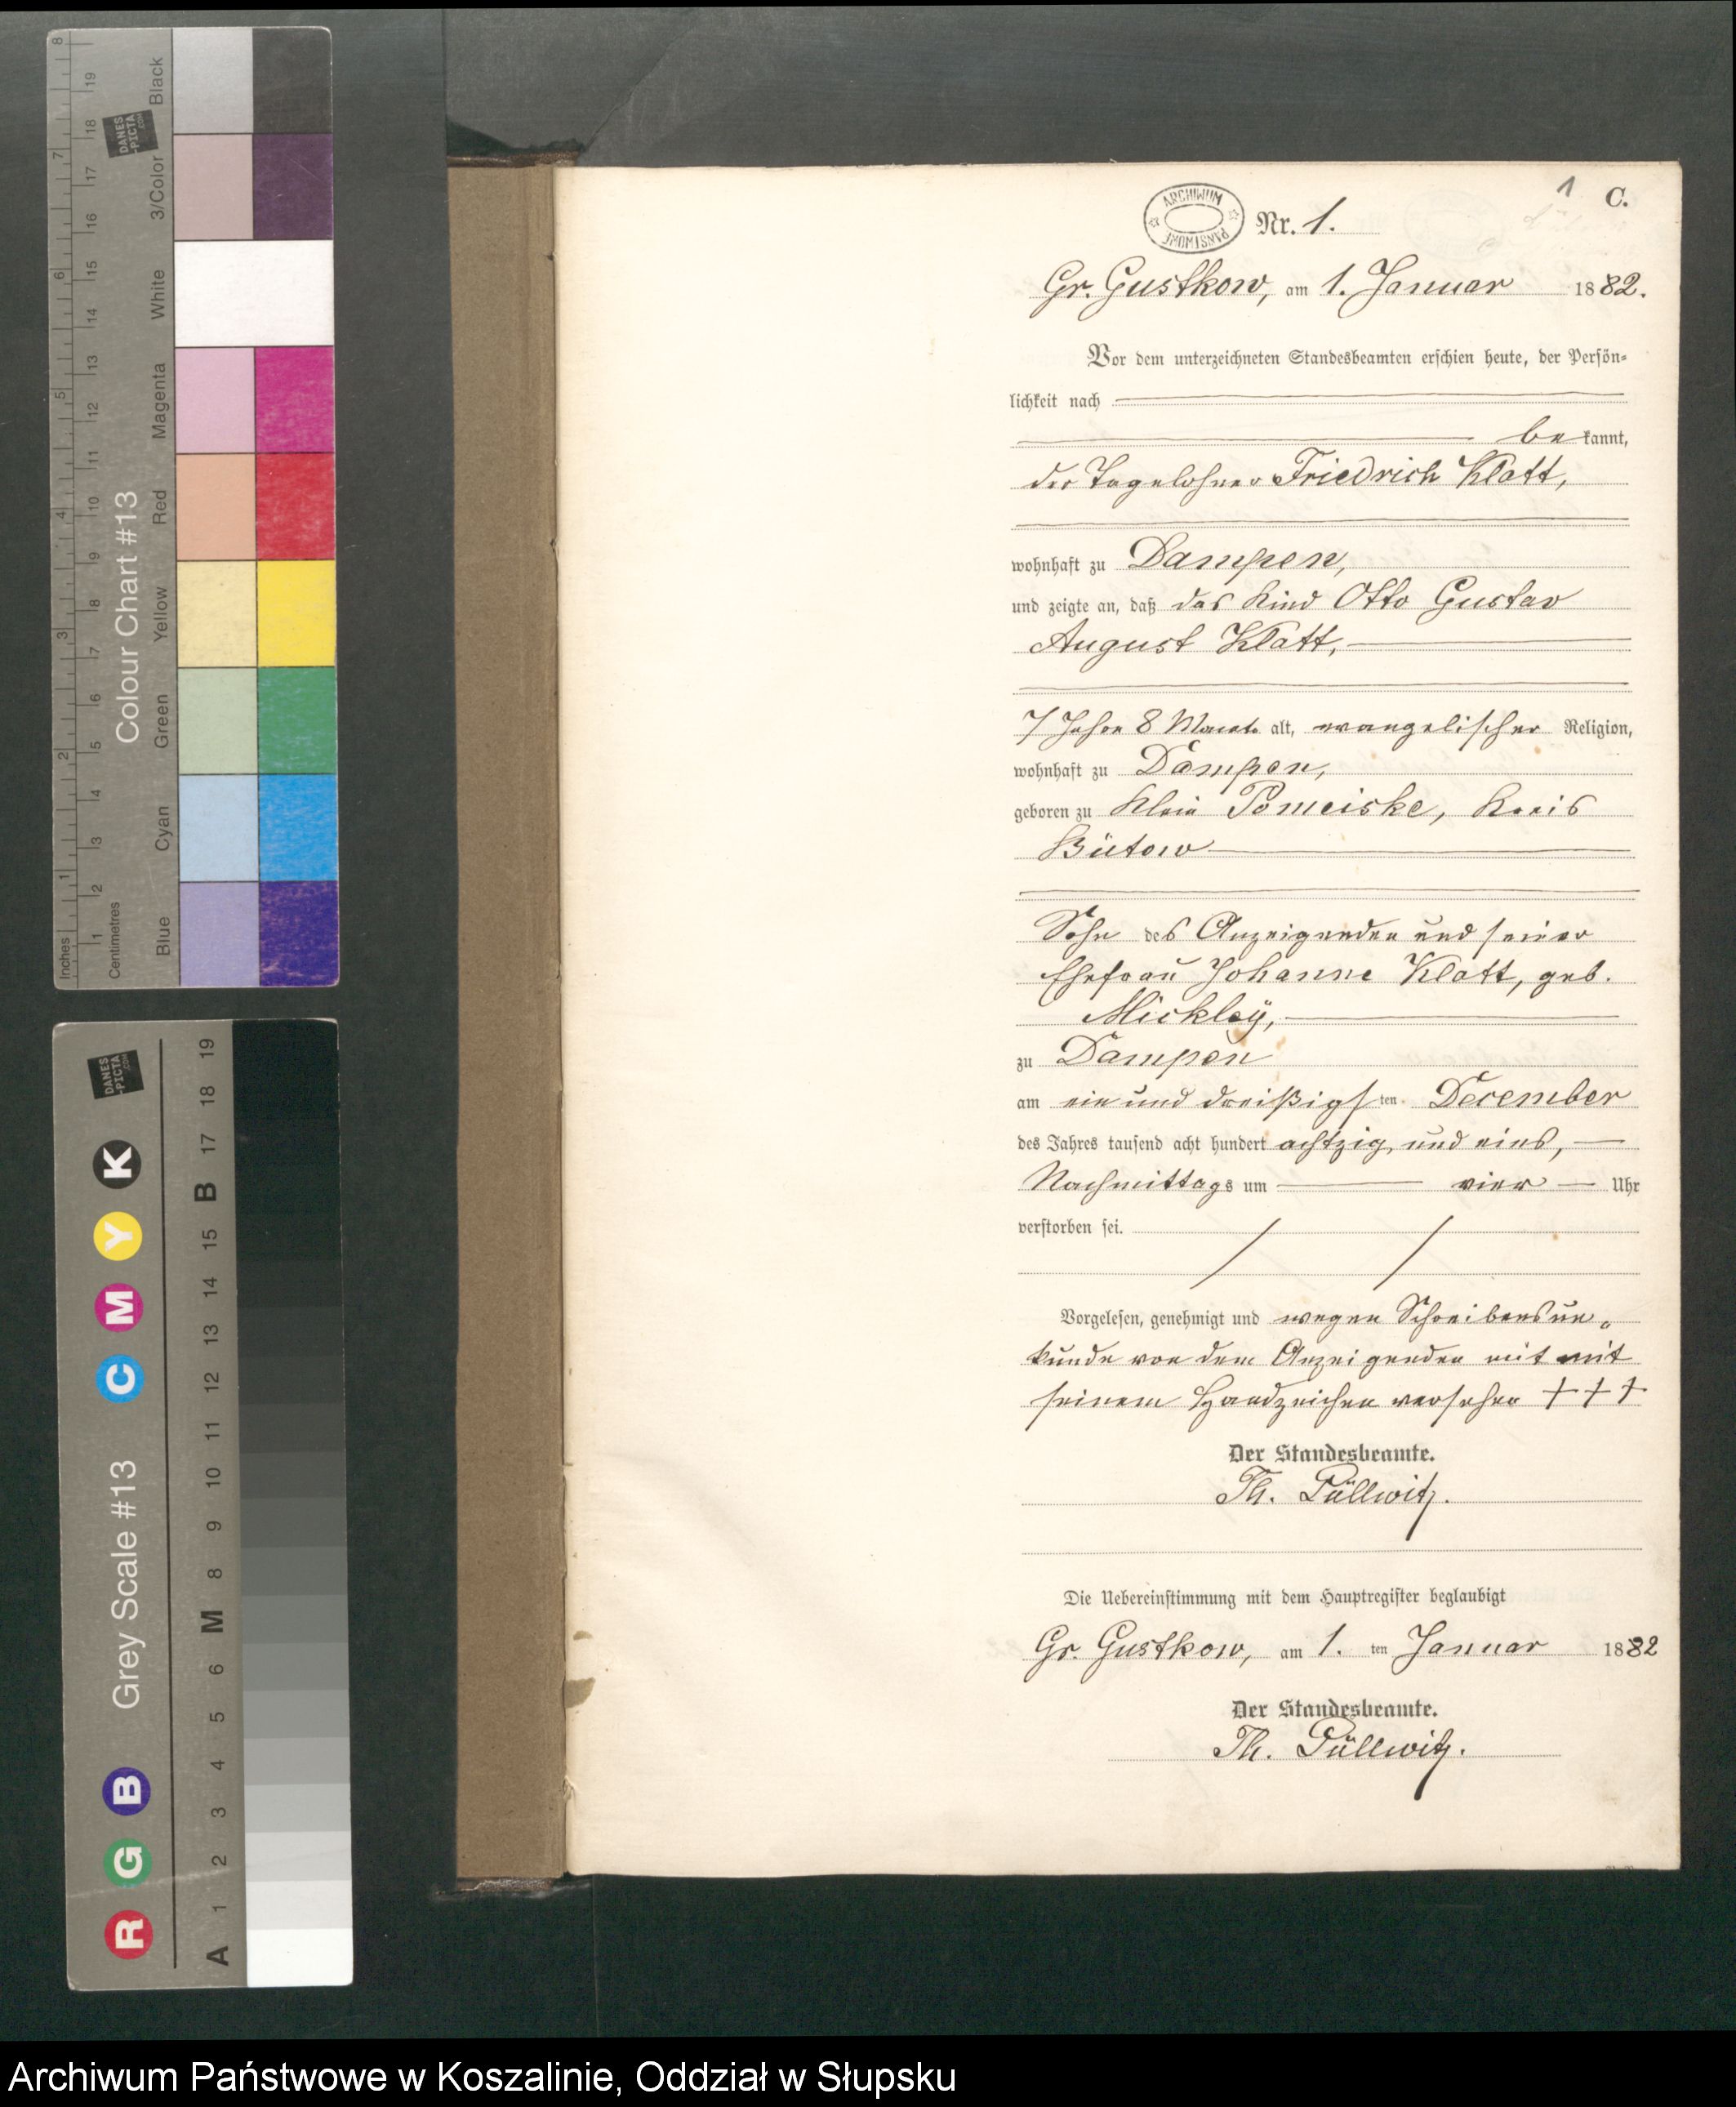 C.
1
ARCHIWUM PAŃSTWOWE
Nr. 1.
Gr. Gustkow, am 1. Januar 1882.
Vor dem unterzeichneten Standesbeamten erschien heute, der Persön-
lichkeit nach
bekannt,
der Tagelohner Friedrich Klatt,
wohnhaft zu Dampen,
und zeigte an, daß das Kind Otto Gustav
August Klatt,
7 Jahre 8 Monate alt, evangelischer Religion,
wohnhaft zu Dampen,
geboren zu Klein Pomeiske, Kreis
Bütow
Sohn des Anzeigenden und seiner
Ehefrau Johanne Klatt, geb.
Mickley,
zu Dampen
am ein und dreißigsten December
des Jahres tausend acht hundert achtzig und eins,
Nachmittags um vier Uhr
verstorben sei.
Vorgelesen, genehmigt und wegen Schreibensun-
kunde von dem Anzeigenden mit mit
seinem Handzeichen versehen +++
Der Standesbeamte.
Th. Püllwitz.
Die Uebereinstimmung mit dem Hauptregister beglaubigt
Gr. Gustkow, am 1. ten Januar 1882
Der Standesbeamte.
Th. Püllwitz.
Colour Chart #13
Inches 1 2 3 4 5 6 7 8
Centimetres 1 2 3 4 5 6 7 8 9 10 11 12 13 14 15 16 17 18 19
Blue Cyan Green Yellow Red Magenta White 3/Color Black
DANES-PICTA.COM
Grey Scale #13
R G B C M Y K
A 1 2 3 4 5 6 M 8 9 10 11 12 13 14 15 B 17 18 19
DANES-PICTA.COM
Archiwum Państwowe w Koszalinie, Oddział w Słupsku